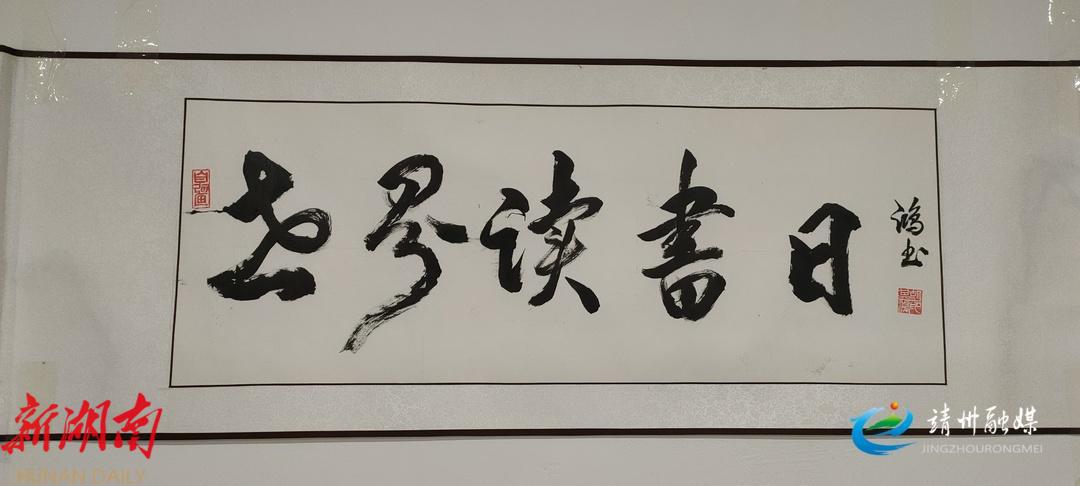 世界读书日
鸿书
新湖南
HUNAN DAILY
靖州融媒
JINGZHOURONGMEI